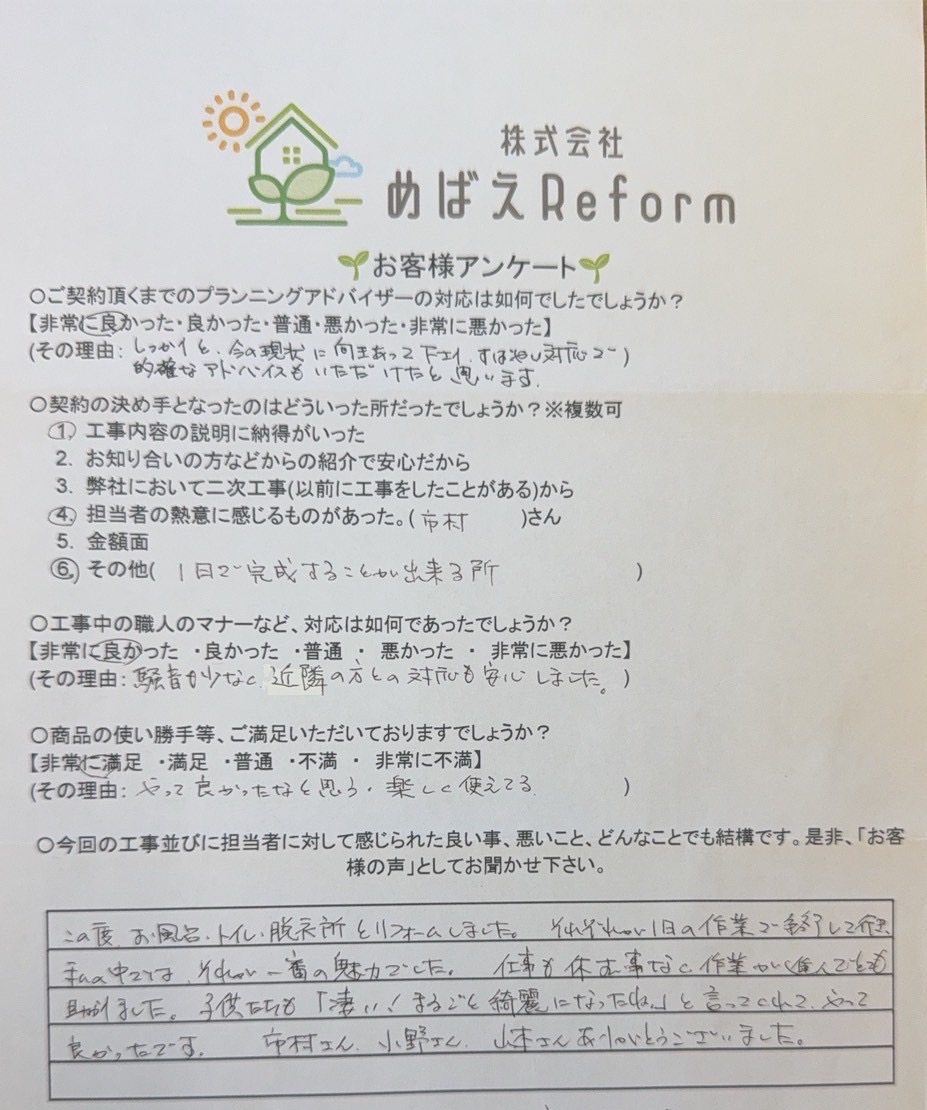 株式会社
めばえReform
お客様アンケート
○ご契約頂くまでのプランニングアドバイザーの対応は如何でしたでしょうか？
【非常に良かった・良かった・普通・悪かった・非常に悪かった】
(その理由: しっかりと、今の現状に向きあって下さり、すばやい対応で )
的確なアドバイスもいただけたと思います。
○契約の決め手となったのはどういった所だったでしょうか？※複数可
1. 工事内容の説明に納得がいった
2. お知り合いの方などからの紹介で安心だから
3. 弊社において二次工事(以前に工事をしたことがある)から
4. 担当者の熱意に感じるものがあった。(市村 )さん
5. 金額面
6. その他( 1日で完成することが出来る所 )
○工事中の職人のマナーなど、対応は如何であったでしょうか？
【非常に良かった ・良かった ・普通 ・ 悪かった ・ 非常に悪かった】
(その理由: 騒音が少なく、近隣の方との対応も安心しました。 )
○商品の使い勝手等、ご満足いただいておりますでしょうか？
【非常に満足 ・満足 ・普通 ・不満 ・ 非常に不満】
(その理由: やって良かったなと思う。楽しく使えてる。 )
○今回の工事並びに担当者に対して感じられた良い事、悪いこと、どんなことでも結構です。是非、「お客
様の声」としてお聞かせ下さい。
この度、お風呂、トイレ、脱衣所とリフォームしました。 それぞれが1日の作業で終了して
私の中では、それが一番の魅力でした。 仕事も休む事なく、作業がいとも
助かりました。子供たちも「凄い！まるごと綺麗になったね。」と言ってくれて、やって
良かったです。 市村さん、小野さん、山本さんありがとうございました。